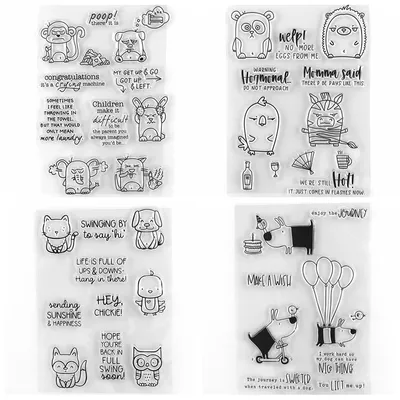 poop!
there it is
congratulations
it's a crying machine
MY GET UP & GO
GOT UP
& LEFT
SOMETIMES
I FEEL LIKE
THROWING IN
THE TOWEL
BUT THAT WOULD
ONLY MEAN
more laundry
Children
make it
difficult
to be
the parent you
always imagined
you'd be...
welp!
NO MORE
EGGS FROM ME
WARNING
Hormonal
DO NOT APPROACH
Momma said
THERE'D BE DAYS LIKE THIS
WE'RE STILL Hot!
IT JUST COMES IN FLASHES NOW
SWINGING BY
to say 'hi'
LIFE IS FULL OF
UPS & DOWNS-
Hang in there!
sending
SUNSHINE
& HAPPINESS
HEY,
CHICKIE!
HOPE
YOU'RE
BACK IN
FULL
SWING
soon!
enjoy the JOURNEY
MAKE A WISH
I work hard so
my dog can have
NICE THINGS
The journey is SWEETER
when traveled with a dog.
You LIFT me up!